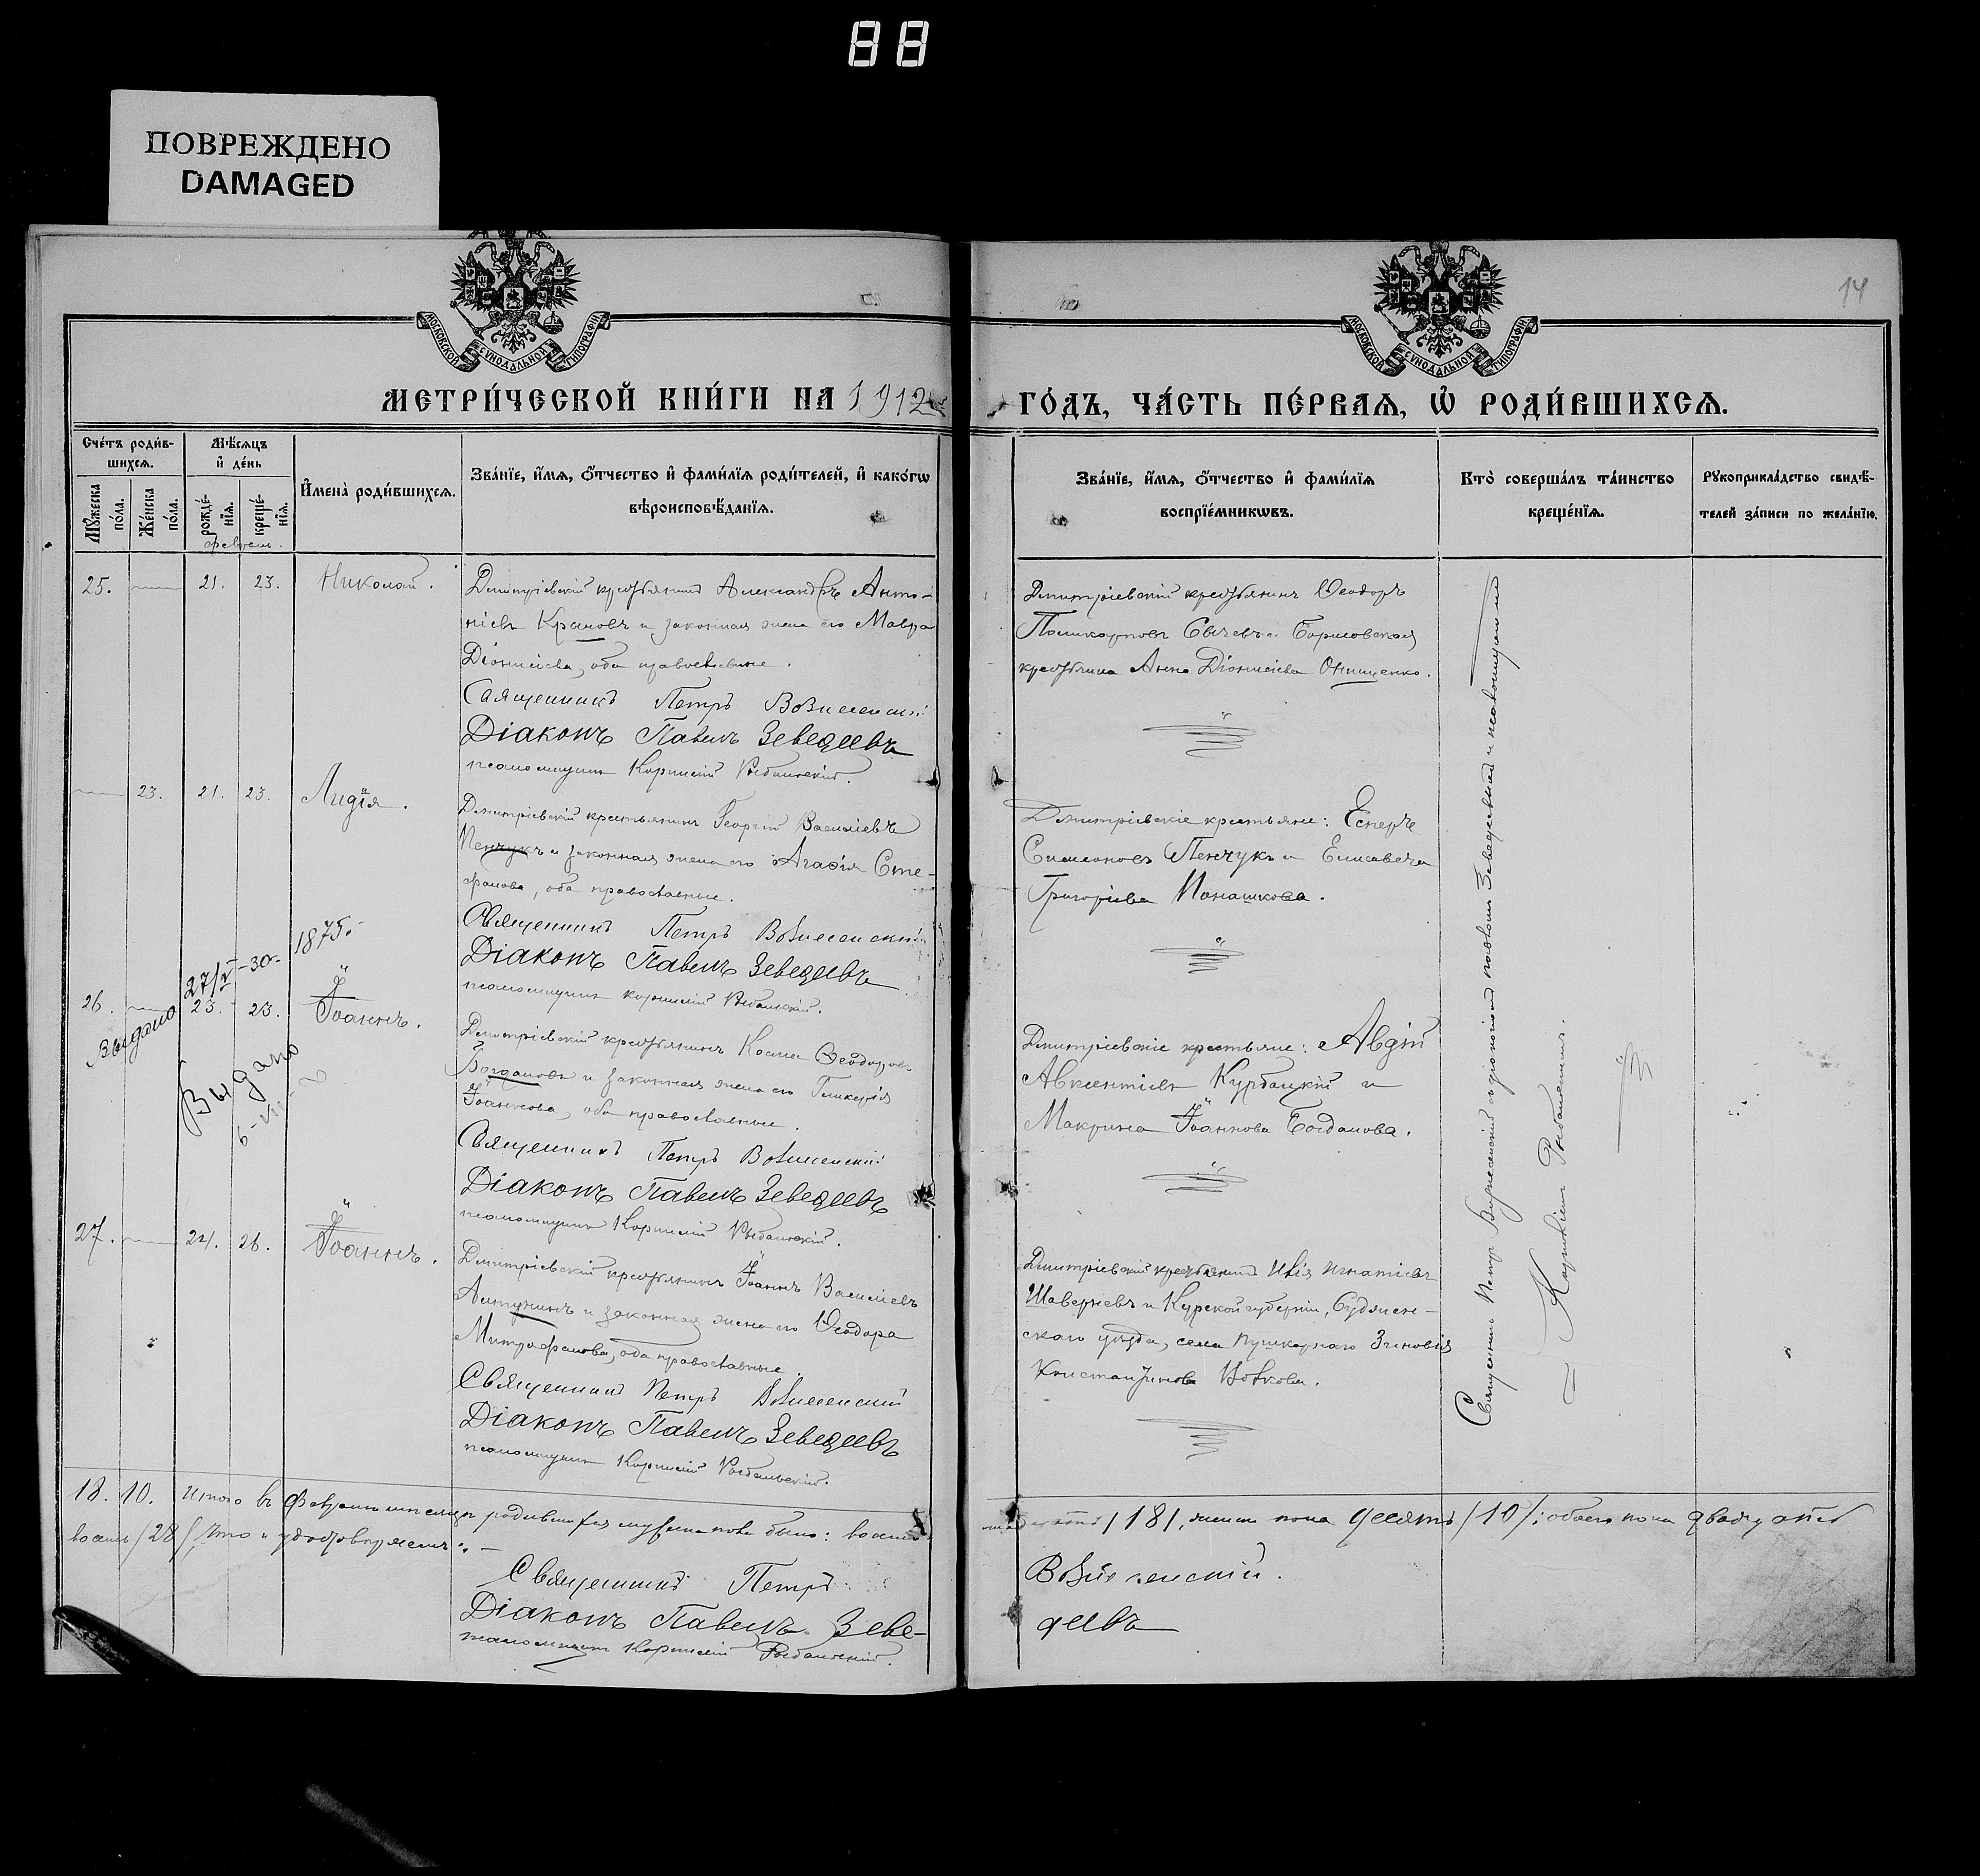 88
ПОВРЕЖДЕНО
DAMAGED
14
МОСКОВСКОЙ СѴНОДАЛЬНОЙ ТИПОГРАФІИ
МОСКОВСКОЙ СѴНОДАЛЬНОЙ ТИПОГРАФІИ
МЕТРИ́ЧЕСКОЙ КНИ́ГИ НА 1912
ГО́ДЪ, ЧА́СТЬ ПЕ́РВАЯ, Ѡ РОДИ́ВШИХСЯ.
Сче́тъ роди́в-
шихся.
Мѣ́сяцъ
и҆ де́нь
Мꙋ́жеска по́ла.
Же́нска по́ла.
рожде́-
нїя.
креще́-
нїя.
И҆мена̀ роди́вшихся.
Зва́нїе, и҆́мя, о҆́тчество и҆ фами́лїя роди́телей, и҆ како́гѡ
вѣроисповѣ́данїя.
Зва́нїе, и҆́мя, о҆́тчество и҆ фами́лїя
воспрїе́мникѡвъ.
Кто̀ соверша́лъ та́инство
креще́нїя.
Рꙋкоприкла́дство свидѣ́-
телей за́писи по жела́нїю.
Февраль.
25. 21. 23. Николай.
Дмитріевскій крестьянинъ Александръ Анто-
ніевъ Крановъ и законная жена его Мавра
Діонисіева, оба православные.
Священникъ Петръ Вознесенскій
Діаконъ Павелъ Зеведеевъ
псаломщикъ Корнилій Рыбальскій.
Дмитріевскій крестьянинъ Ѳеодоръ
Поликарповъ Сычевъ и Борисовская
крестьянка Анна Діонисіева Онищенко.
23. 21. 23. Лидія.
Дмитріевскій крестьянинъ Георгій Василіевъ
Пенчукъ и законная жена его Агаѳія Сте-
фанова, оба православные.
Священникъ Петръ Вознесенскій
Діаконъ Павелъ Зеведеевъ
псаломщикъ Корнилій Рыбальскій.
Дмитріевскіе крестьяне: Есперъ
Симеоновъ Пенчукъ и Елисавета
Григоріева Монашкова.
27/X -30- 1875.
26. 23. 23. Іоаннъ.
Выдано
Выдано
Дмитріевскій крестьянинъ Косма Ѳеодоровъ
Богдановъ и законная жена его Гликерія
Іоаннова, оба православные.
Священникъ Петръ Вознесенскій
Діаконъ Павелъ Зеведеевъ
псаломщикъ Корнилій Рыбальскій.
Дмитріевскіе крестьяне: Авдій
Авксентіевъ Курбацкій и
Макрина Іоаннова Богданова.
27. 24. 26. Іоаннъ.
Дмитріевскій крестьянинъ Іоаннъ Василіевъ
Алтунинъ и законная жена его Ѳеодора
Митрофанова, оба православные.
Священникъ Петръ Вознесенскій
Діаконъ Павелъ Зеведеевъ
псаломщикъ Корнилій Рыбальскій.
Дмитріевскій крестьянинъ Илія Игнатіевъ
Шаверневъ и Курской губерніи, Суджен-
скаго уѣзда, села Пушкарнаго Зиновія
Константинова Волкова.
Священникъ Петръ Вознесенскій съ діакономъ Павломъ Зеведеевымъ и псаломщикомъ
Корниліемъ Рыбальскимъ.
18. 10. Итого въ Февралѣ мѣсяцѣ родившихся мужеска пола было: восем-
надцать /18/, женска пола десять /10/; обоего пола двадцать
восемь /28/, что и удостовѣряемъ:
Священникъ Петръ Вознесенскій.
Діаконъ Павелъ Зеве-
деевъ
псаломщикъ Корнилій Рыбальскій.